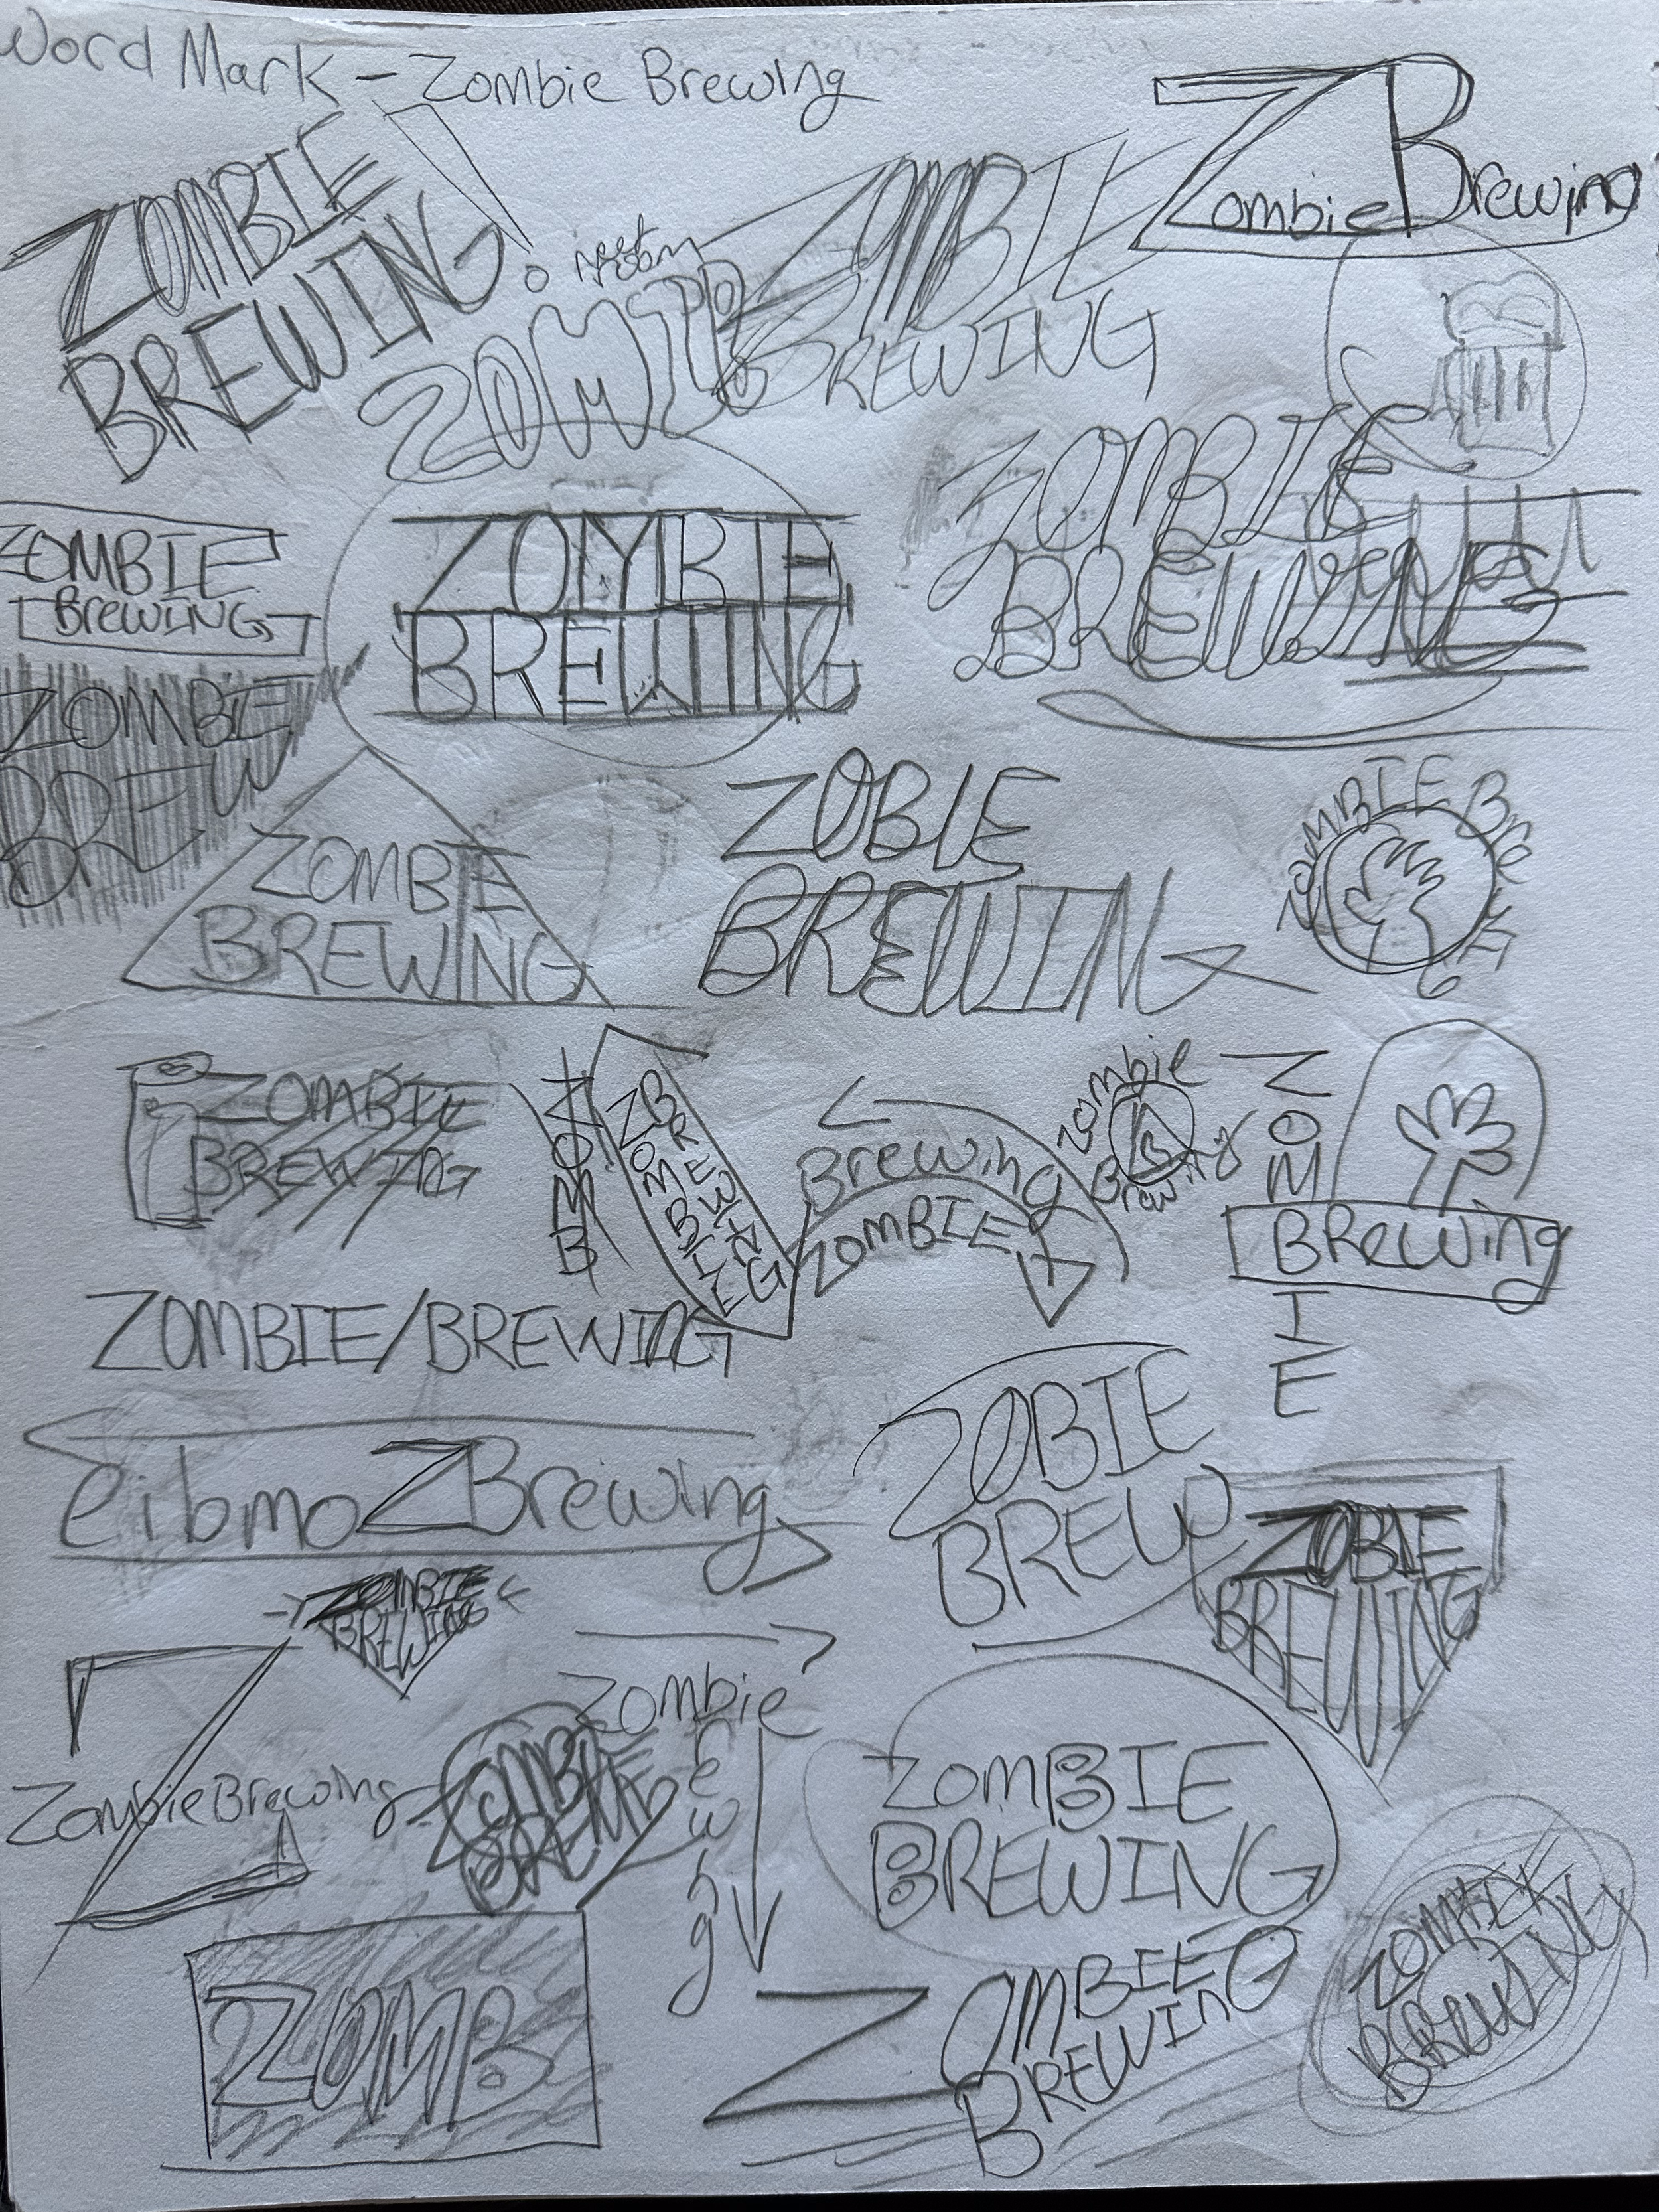 Word Mark - Zombie Brewing
ZOMBIE
BREWING!
ZOMB
ZOMBIE
BREWING
ZB
Zombie Brewing
ZOMBIE
BREWING
ZOMBIE
BREWING
ZOMBIE
BREWING
ZOMBIE
BREW
ZOMBIE
BREWING
ZOBIE
BREWING
ZOMBIE BREWING
ZOMBIE
BREWING
ZOMB
ZOMBIE
BREWING
Brewing
ZOMBIE
Zombie
B
Brewing
ZOMBIE
BRewing
ZOMBIE/BREWING
eibmoZBrewing
ZOBIE
BREW
ZOBIE
BREWING
ZOMBIE
BREWING
Z
ZombieBrewing
Zombie
ewing
ZOMBIE
BREW
ZOMBIE
BREWING
ZOMB
ZOMBIE
BREWING
ZOMBIE
BREWING